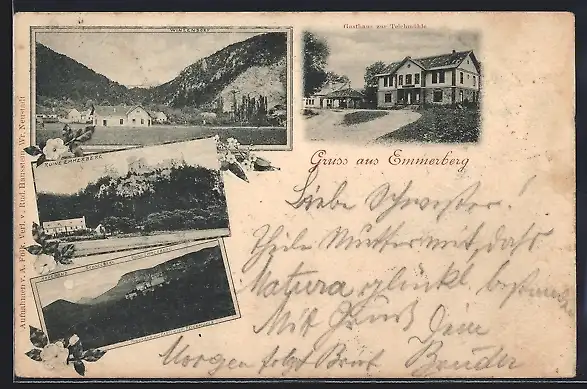 WINZENDORF
Gasthaus zur Teichmühle
RUINE EMMERBERG
Gruss aus Emmerberg
Aufnahmen v. A. Verl. v. Rud. Hausstein, Wr. Neustadt
Liebe Schwester!
Theile Mutter mit, daß
Matura glückl. bestanden
Mit Gruß Dein
Morgen folgt Brief Bruder